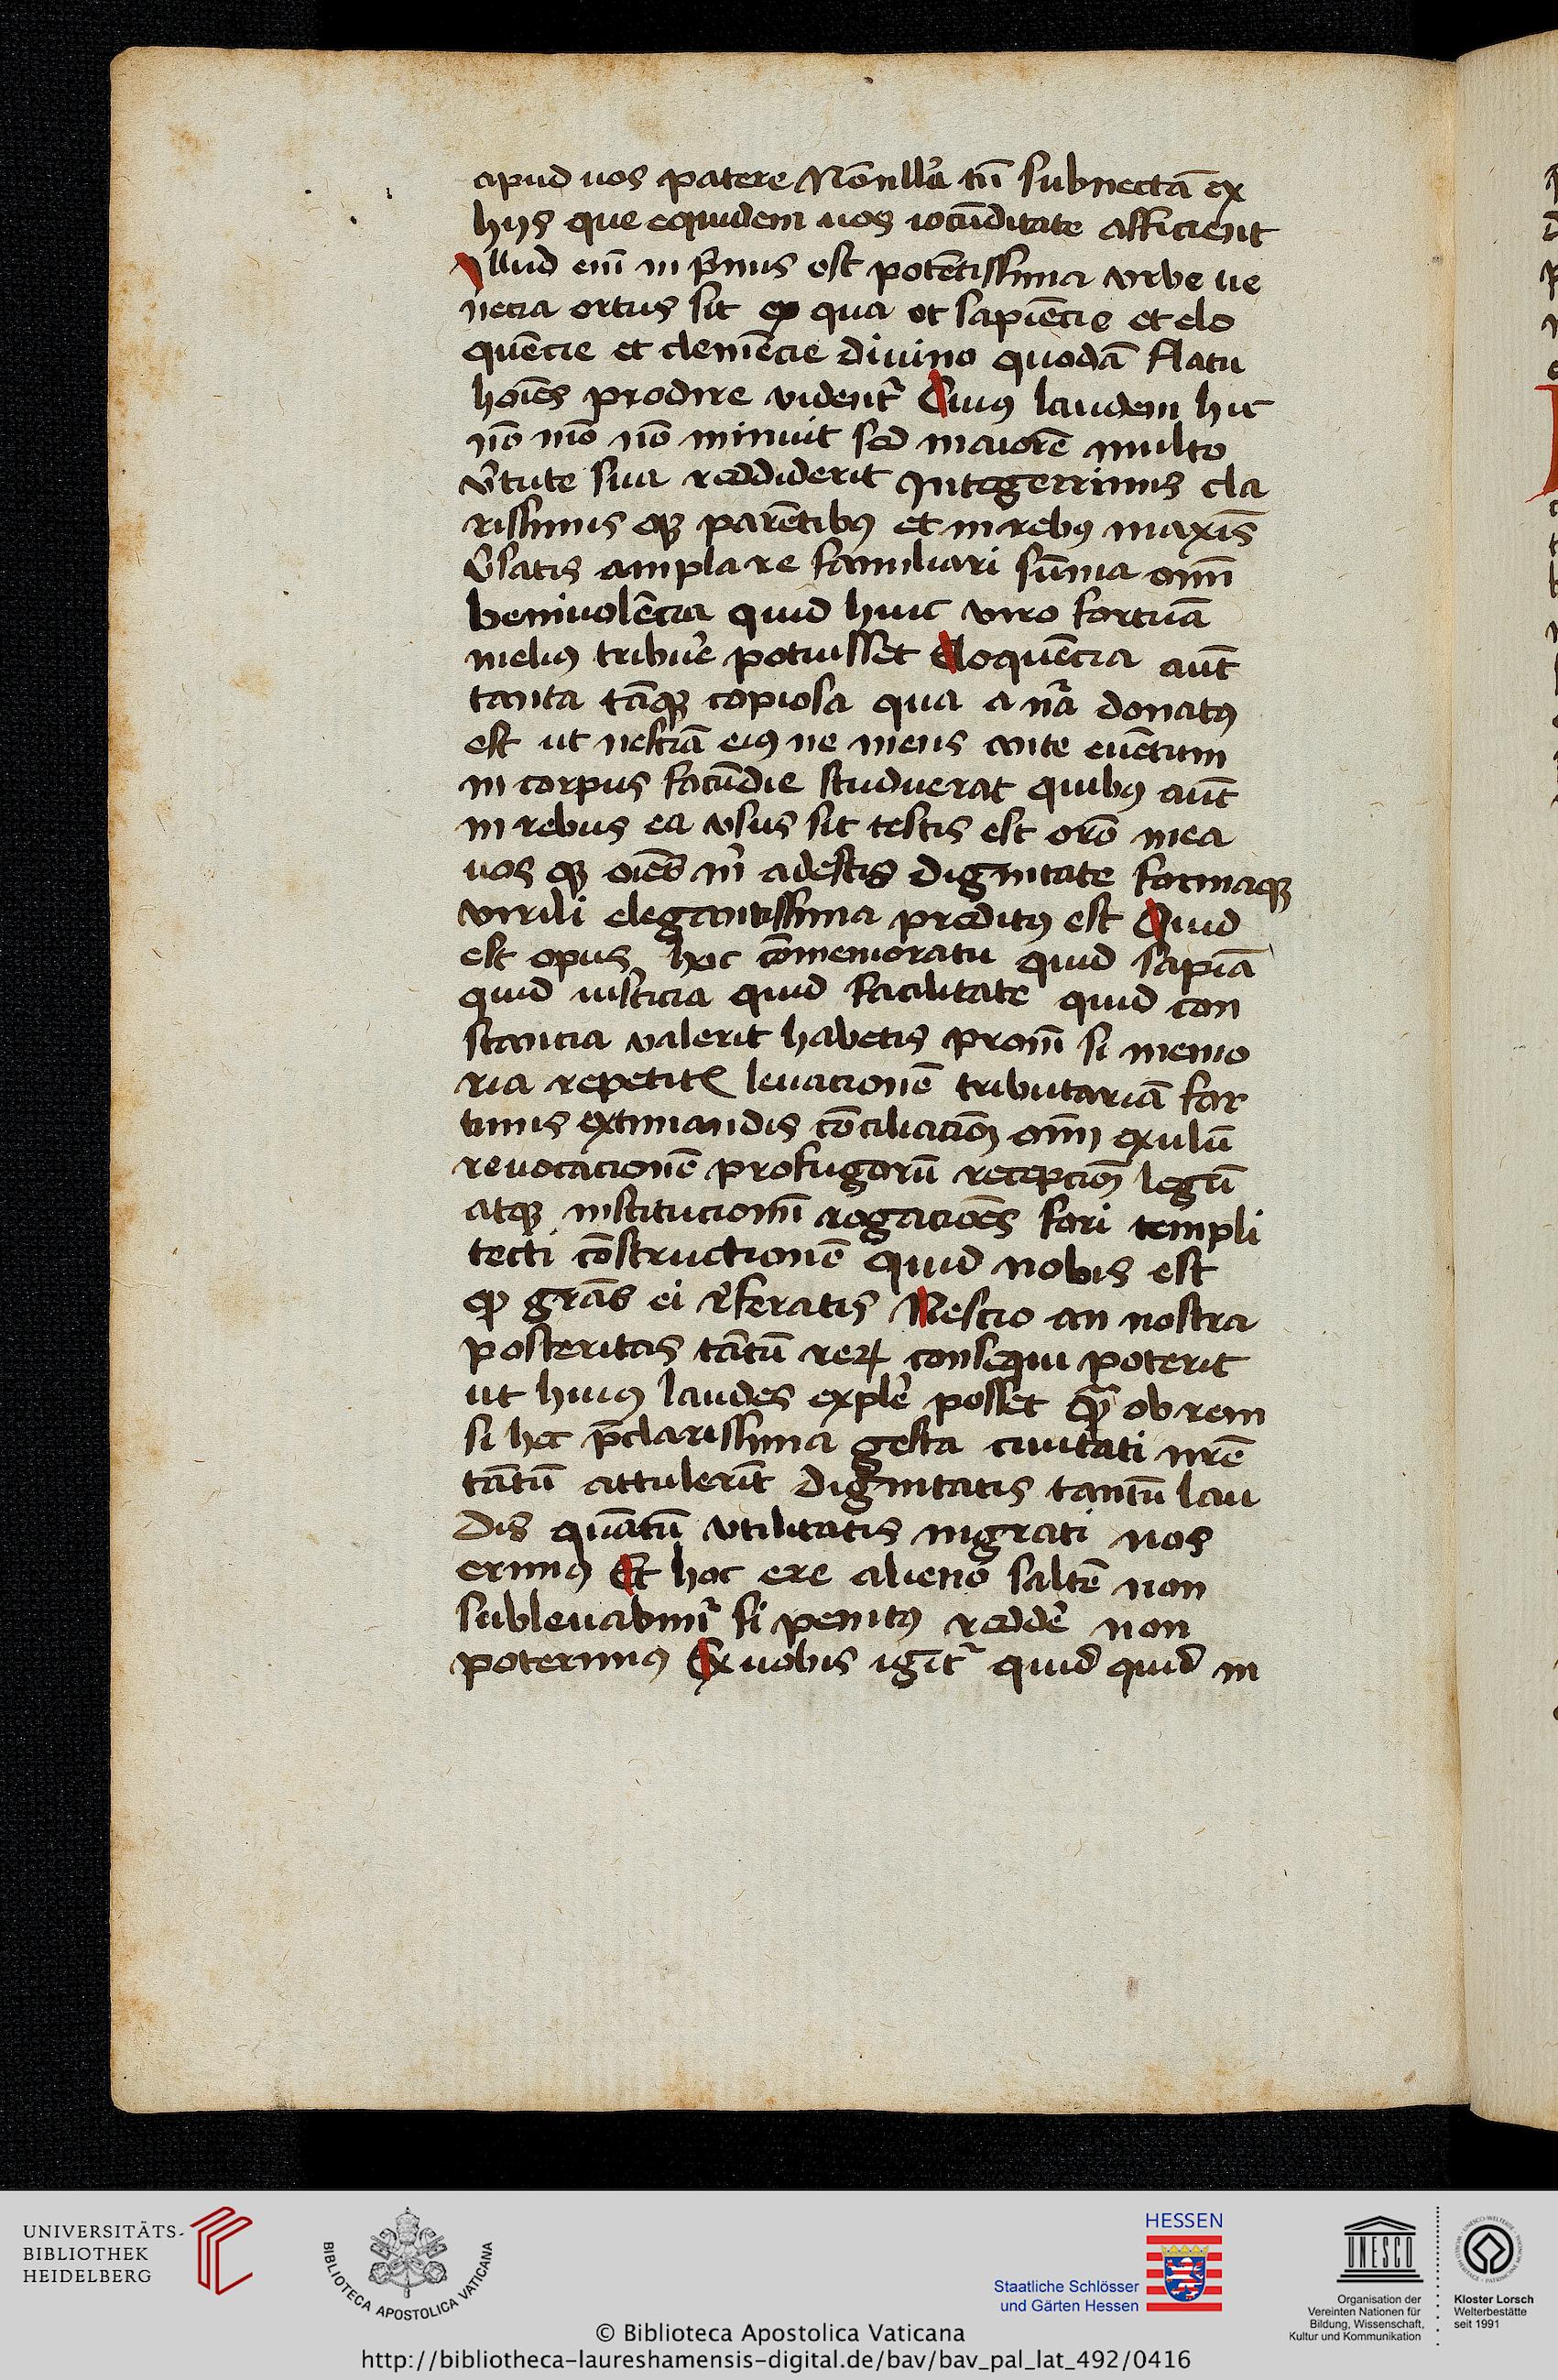 apud uos patere Nōnlla tn̄ subnectā ex
hijs que equidem uos iocūditate afficient
Illud em̄ in p̄mis est potētissima vrbe ue
necia ortus sit ex qua et sapiēcie et elo
quēcie et clemēcie divino quodā flatu
hoīes prodire vident̉ Cuiꝯ laudem hic
nō mō nō minuit sed maiorē multo
v̉tute sua reddiderit Integerrimis cla
rissimis qꝫ parētibꝯ et in rebꝯ maxīs
v̉satis ampla re familiari sūma om̄i
beniuolēcia quid huic viro fortuā
meliꝯ tribue᷑ potuisset Eloquēcia aut̄
tanta tāqꝫ copiosa qua a nā donatꝯ
est ut nesciā eiꝯ ne mens ante euētum
in corpus facūdie studuerat quibꝯ aut̄
in rebus ea vsus sit testis est orō mea
uos qꝫ oīes adestis dignitate formaqꝫ
virili elegantissima preditꝯ est Quid
est opus hoc cōmemoratu quid sapiā
quid iusticia quid facilitate quid con
stancia valerit habetis si memo
ria repetitꝭ leuacionē tributariā for
tunis extimandis cōciliacōꝫ om̄i exulū
reuocacionē profugorū recepcōꝫ legū
atqꝫ institucionū rogacōes fori templi
tecti cōstructionē quid nobis est
ꝙ grās ei r̉feratis Nescio an nostra
posteritas tātū reꝝ consequi poterit
ut huiꝯ laudes exple᷑ posset Quā ob rem
si hec p̄clarissima gesta ciuitati nr̄e
tātū attulerīt dignitatis tantū lau
dis quātū vtilitatis ingrati nos
erimꝯ Et hoc ere alieno saltē non
subleuabimꝰ si penitꝯ redde᷑ non
poterimꝯ Ex uobis igit̉ quid quid in
UNIVERSITÄTS-
BIBLIOTHEK
HEIDELBERG
BIBLIOTECA APOSTOLICA VATICANA
HESSEN
Staatliche Schlösser
und Gärten Hessen
UNESCO
Organisation der
Vereinten Nationen für
Bildung, Wissenschaft,
Kultur und Kommunikation
Kloster Lorsch
Welterbestätte
seit 1991
© Biblioteca Apostolica Vaticana
http://bibliotheca-laureshamensis-digital.de/bav/bav_pal_lat_492/0416